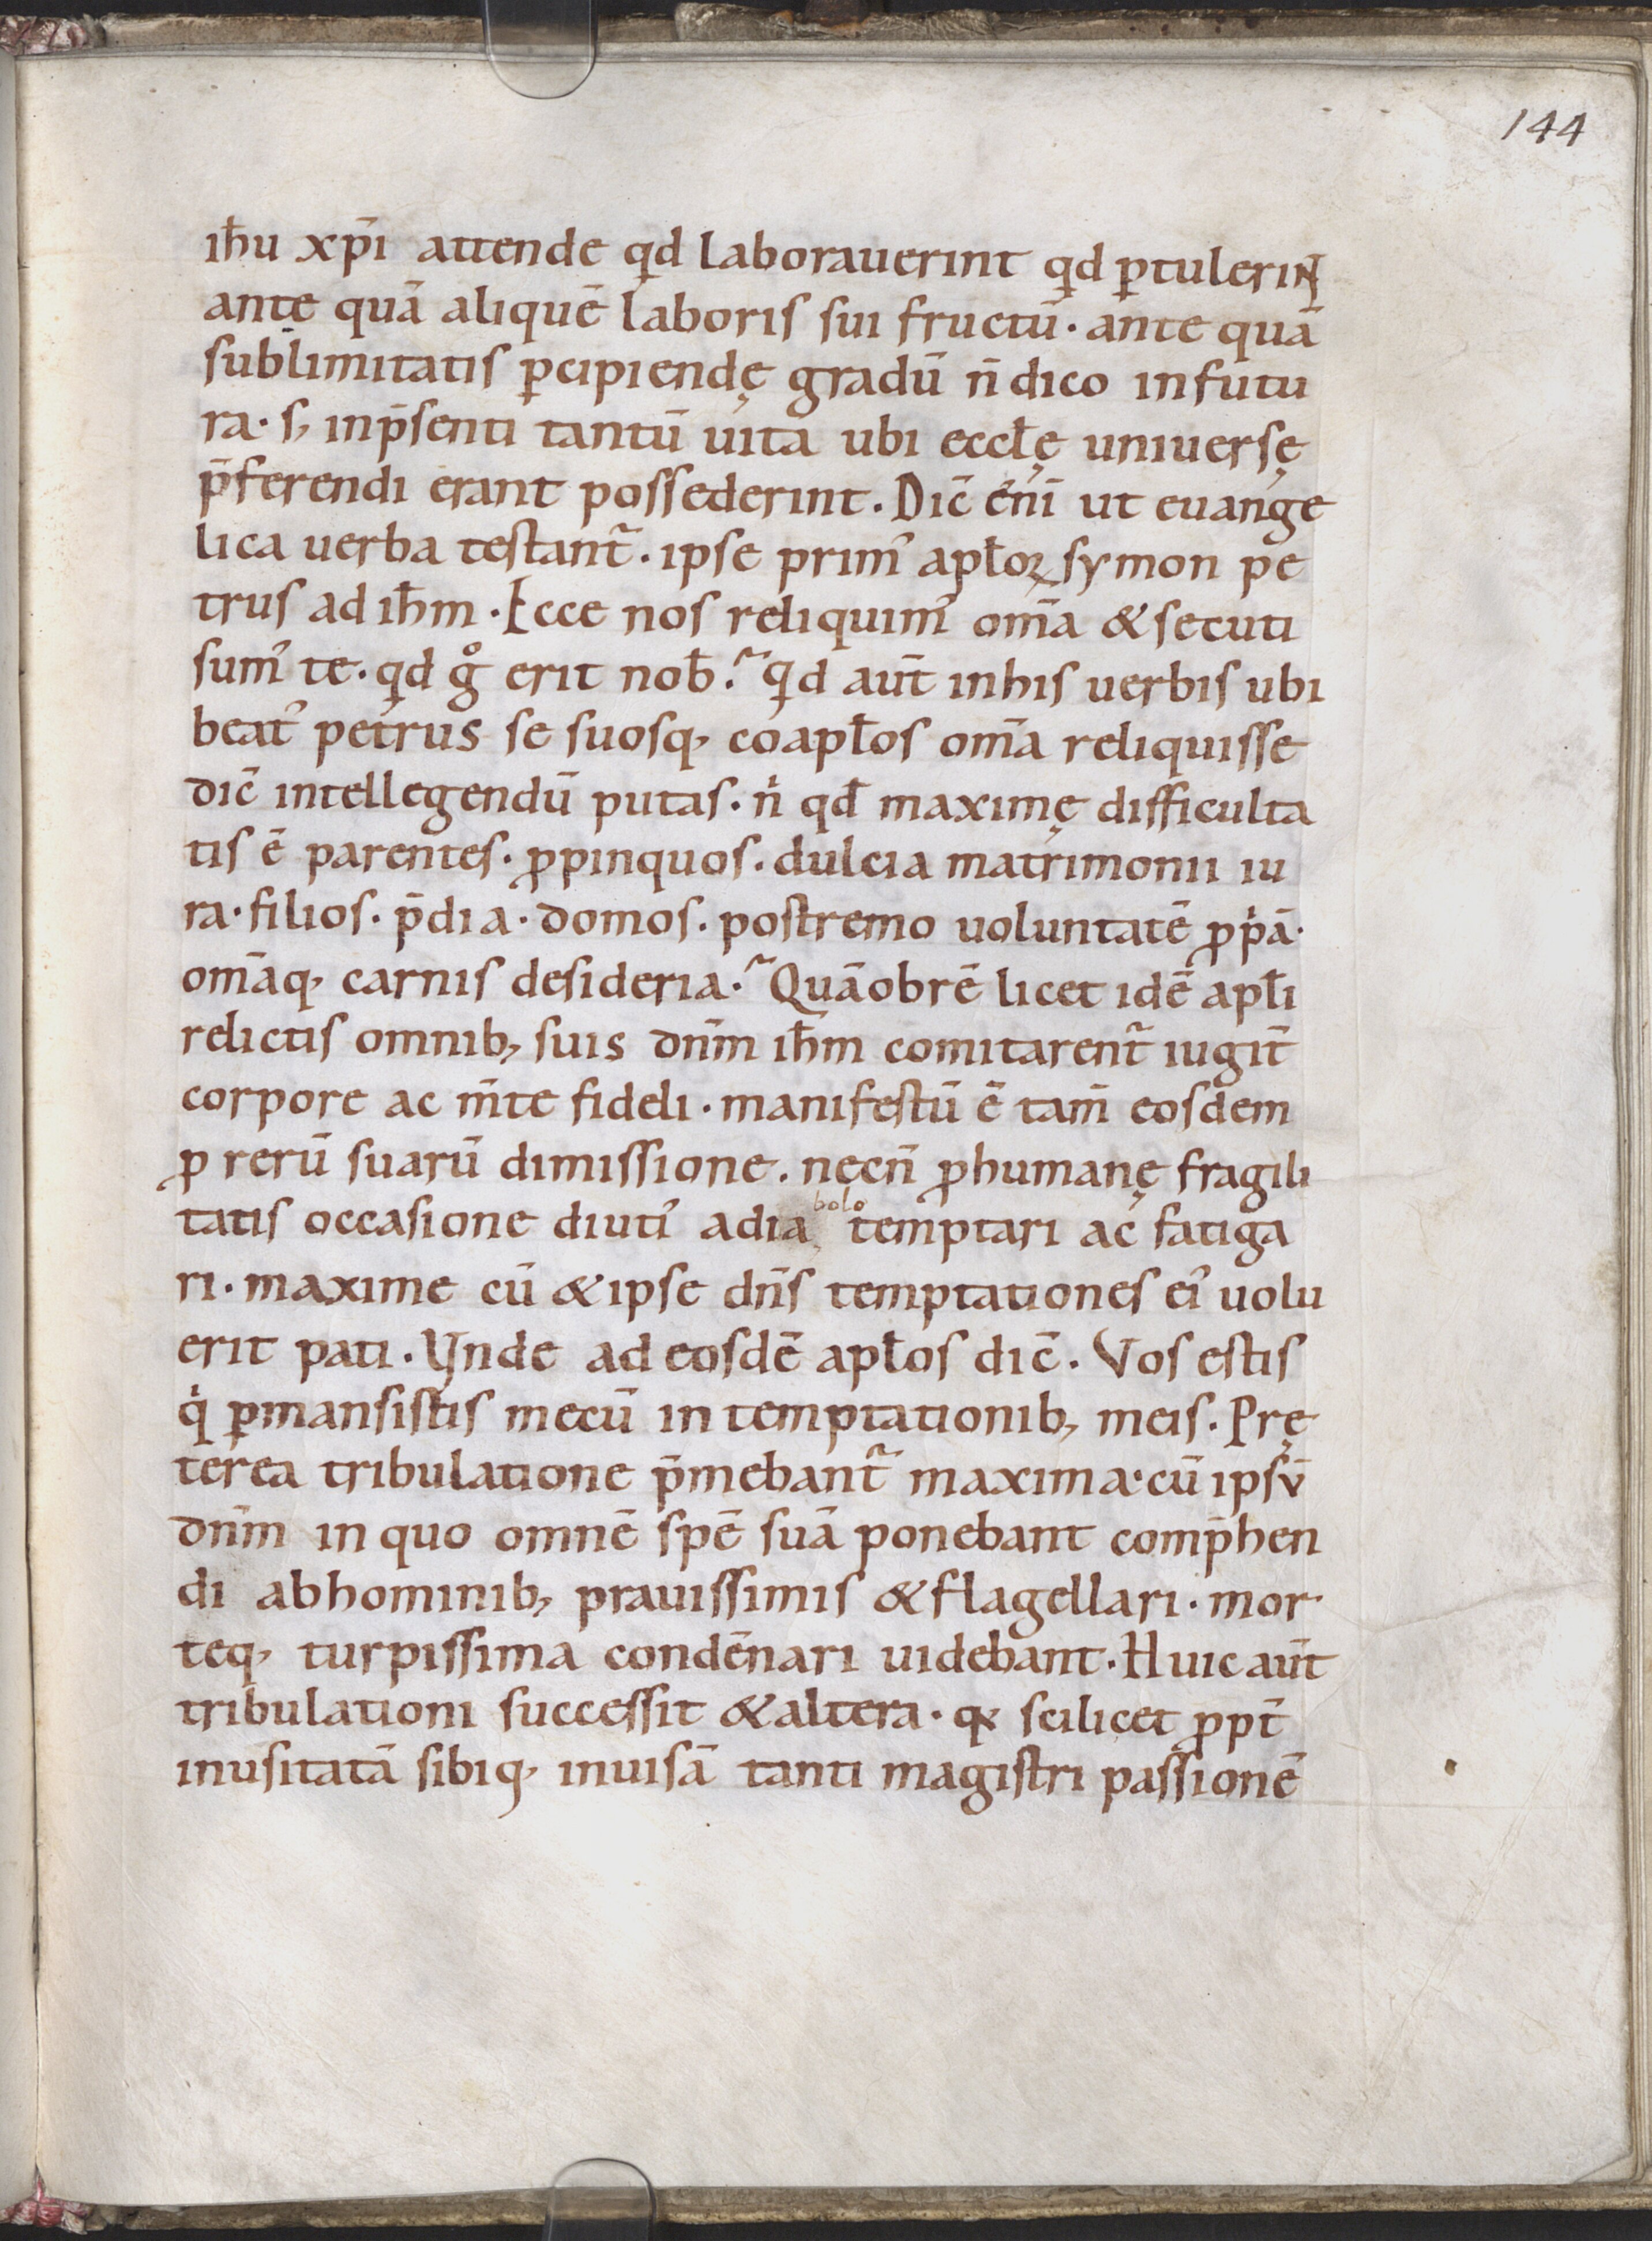 144
ih̄u xp̄i attende qd laborauerint qd ꝑtulerinT
ante quā aliquē laboris sui fructū· ante quā
sublimitatis ꝑcipiendę gradū n̄ dico infutu
ra· s, inp̄senti tantū uita ubi eccłę uniuersę
p̄ferendi erant possederint. Dic̄ eni̅ ut euange
lica uerba testant᷑· ipse prim᾽ apłoꝝ symon pe
trus ad ih̄m· Ecce nos reliquim᾽ om̄a & secuti
sum᾽ te· qd gͦ erit nob̄? qd aut̄ inhis uerbis ubi
beat᾽ petrus se suosq, coapłos om̄a reliquisse
dic̄ intellegendū putas· nͥ qd̄ maximę difficulta
tis ē parentes· ꝓpinquos· dulcia matrimonii iu
ra· filios· p̄dia· domos· postremo uoluntatē ꝓpͥā·
om̄aq, carnis desideria? Quāobrē licet idē apłi
relictis omnib, suis dnm̄ ih̄m comitarent᷑ iugit̄
corpore ac m̄te fideli· manifestū ē tam̄ eosdem
ꝓ rerū suarū dimissione· necn̄ ꝓhumanę fragili
tatis occasione diuti᾽ adia bolo temptari ac fatiga
ri· maxime cū & ipse dn̄s temptationes ei᾽ uolu
erit pati· Vnde ad eosdē apłos dic̄. Vos estis
qͥ ꝑmansistis mecū in temptationib, meis. Prę
terea tribulatione p̄mebant᷑ maxima· cū ipsv̄
dnm̄ in quo omnē spē suā ponebant comp̄hen
di abhominib, prauissimis & flagellari· mor
teq, turpissima condēnari uidebant· Huic aut̄
tribulationi successit & altera· qͣ scilicet ꝓpt̄
inusitatā sibiq, inuisā tanti magistri passionē